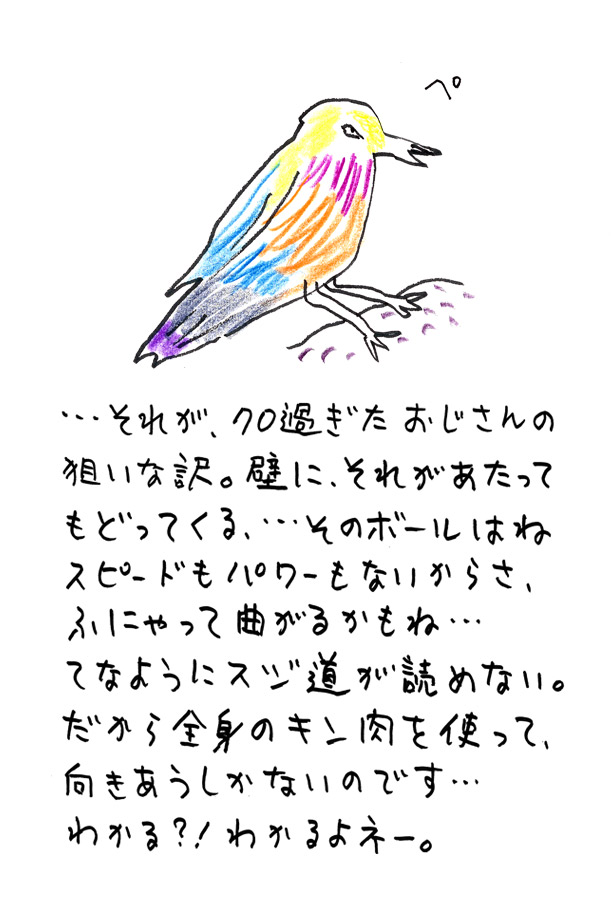 ペ
…それが、クロ過ぎた おじさんの
狙いな訳。壁に、それがあたって
もどってくる、…そのボールはね
スピードもパワーもないからさ、
ふにゃって曲がるかもね…
てなようにスジ道が読めない。
だから全身のキン肉を使って、
向きあうしかないのです…
わかる?!わかるよネー。